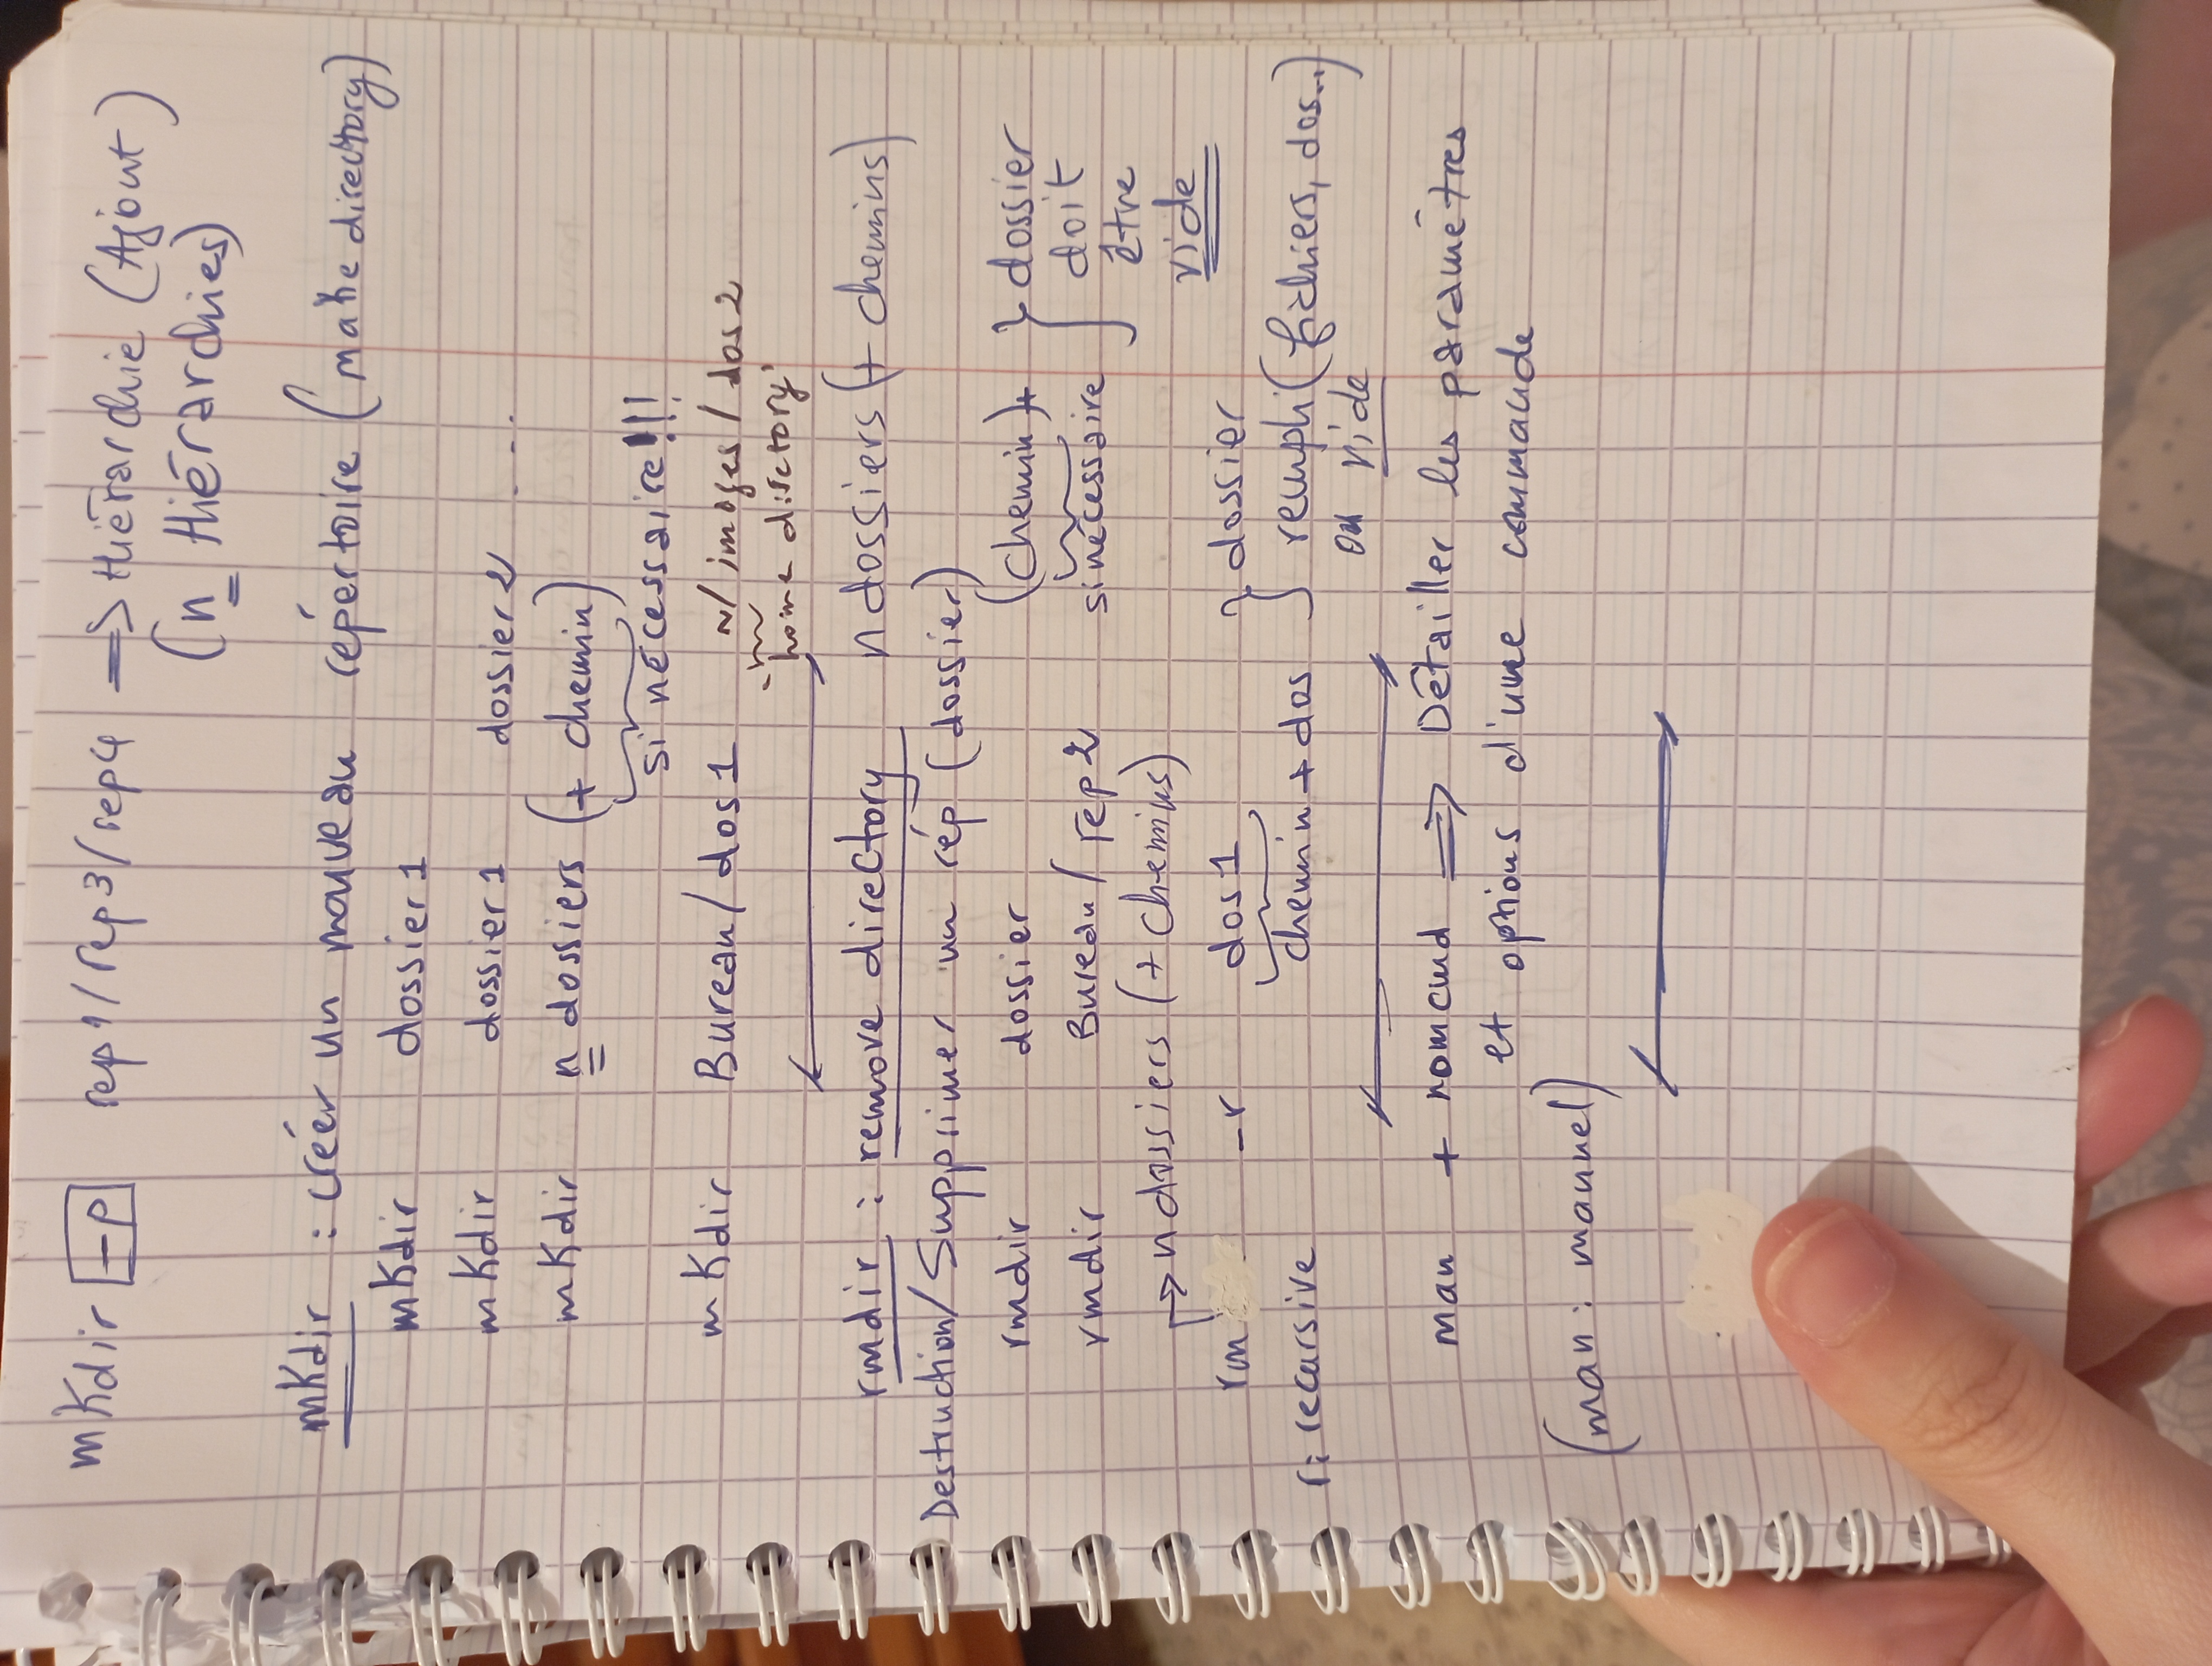 mkdir -p rep1/rep3/rep4 => Hiérarchie (Ajout)
(n Hiérarchies)
mkdir : créer un nouveau répertoire (make directory)
mkdir dossier1
mkdir dossier1 dossier2 ....
mkdir n dossiers (+ chemin)
si nécessaire!!!
mkdir Bureau/dos1 ~/images/dos2
'home directory'
rmdir : remove directory n dossiers (+ chemins)
Destruction/Supprimer un rép (dossier)
rmdir dossier (chemin)+ } dossier
rmdir Bureau/rep2 si nécessaire doit
être
→ n dossiers (+ chemins)
vide
rm -r dos1 } dossier
r: recursive chemin + dos rempli (fichiers, dos..)
ou vide
man + nomcmd => Détailler les paramètres
et options d'une commande
(man : manuel)